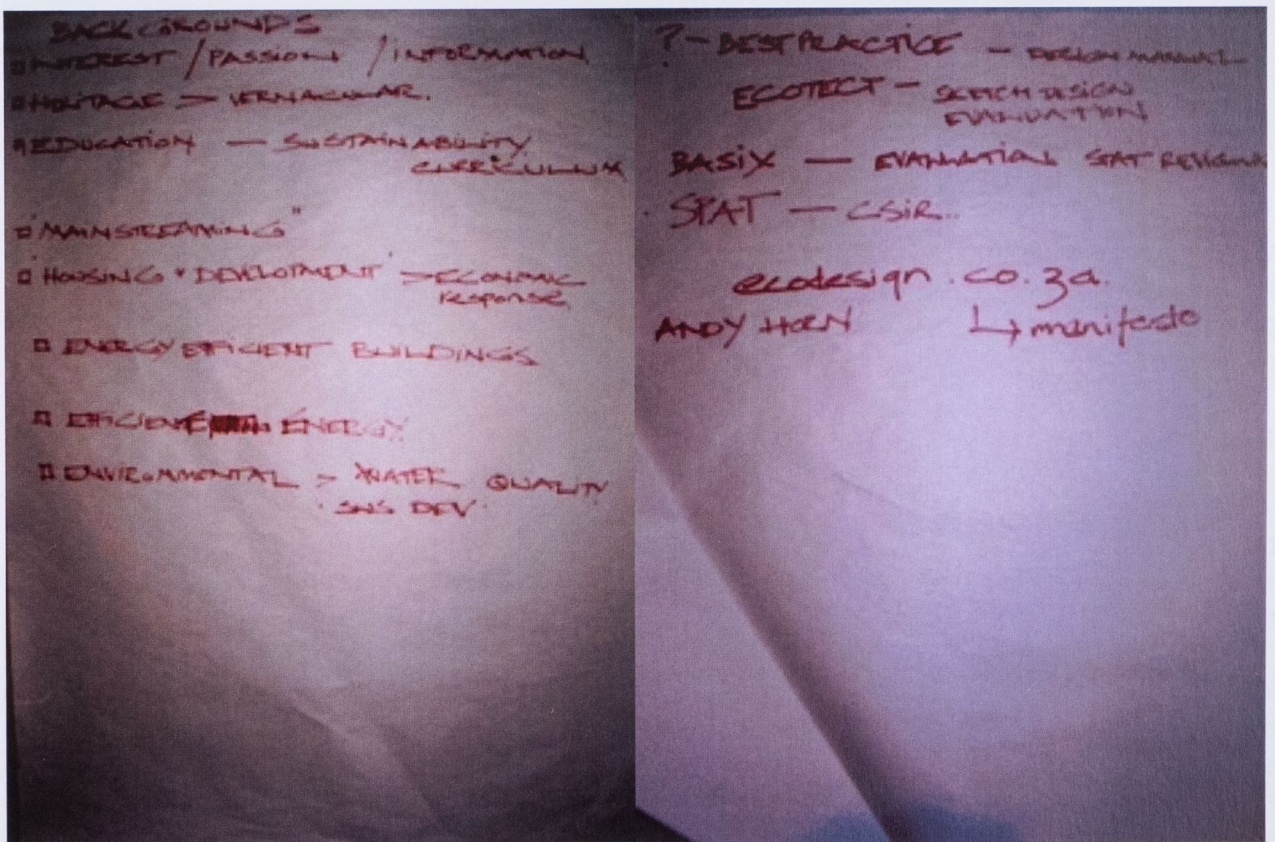 BACKGROUNDS
INTEREST / PASSION / INFORMATION
HERITAGE > VERNACULAR.
EDUCATION — SUSTAINABILITY
CURRICULUM
"MAINSTREAMING"
HOUSING & DEVELOPMENT > ECONOMIC
response
ENERGY EFFICIENT BUILDINGS
EFFICIENT ENERGY
ENVIRONMENTAL > WATER QUALITY
SUS DEV
? - BEST PRACTICE - DESIGN MANUAL
ECOTECT - SKETCH DESIGN
EVALUATION
BASIX — EVALUATION STAT
SPAT — CSIR..
ecodesign.co.za.
ANDY HORN ↳ manifesto